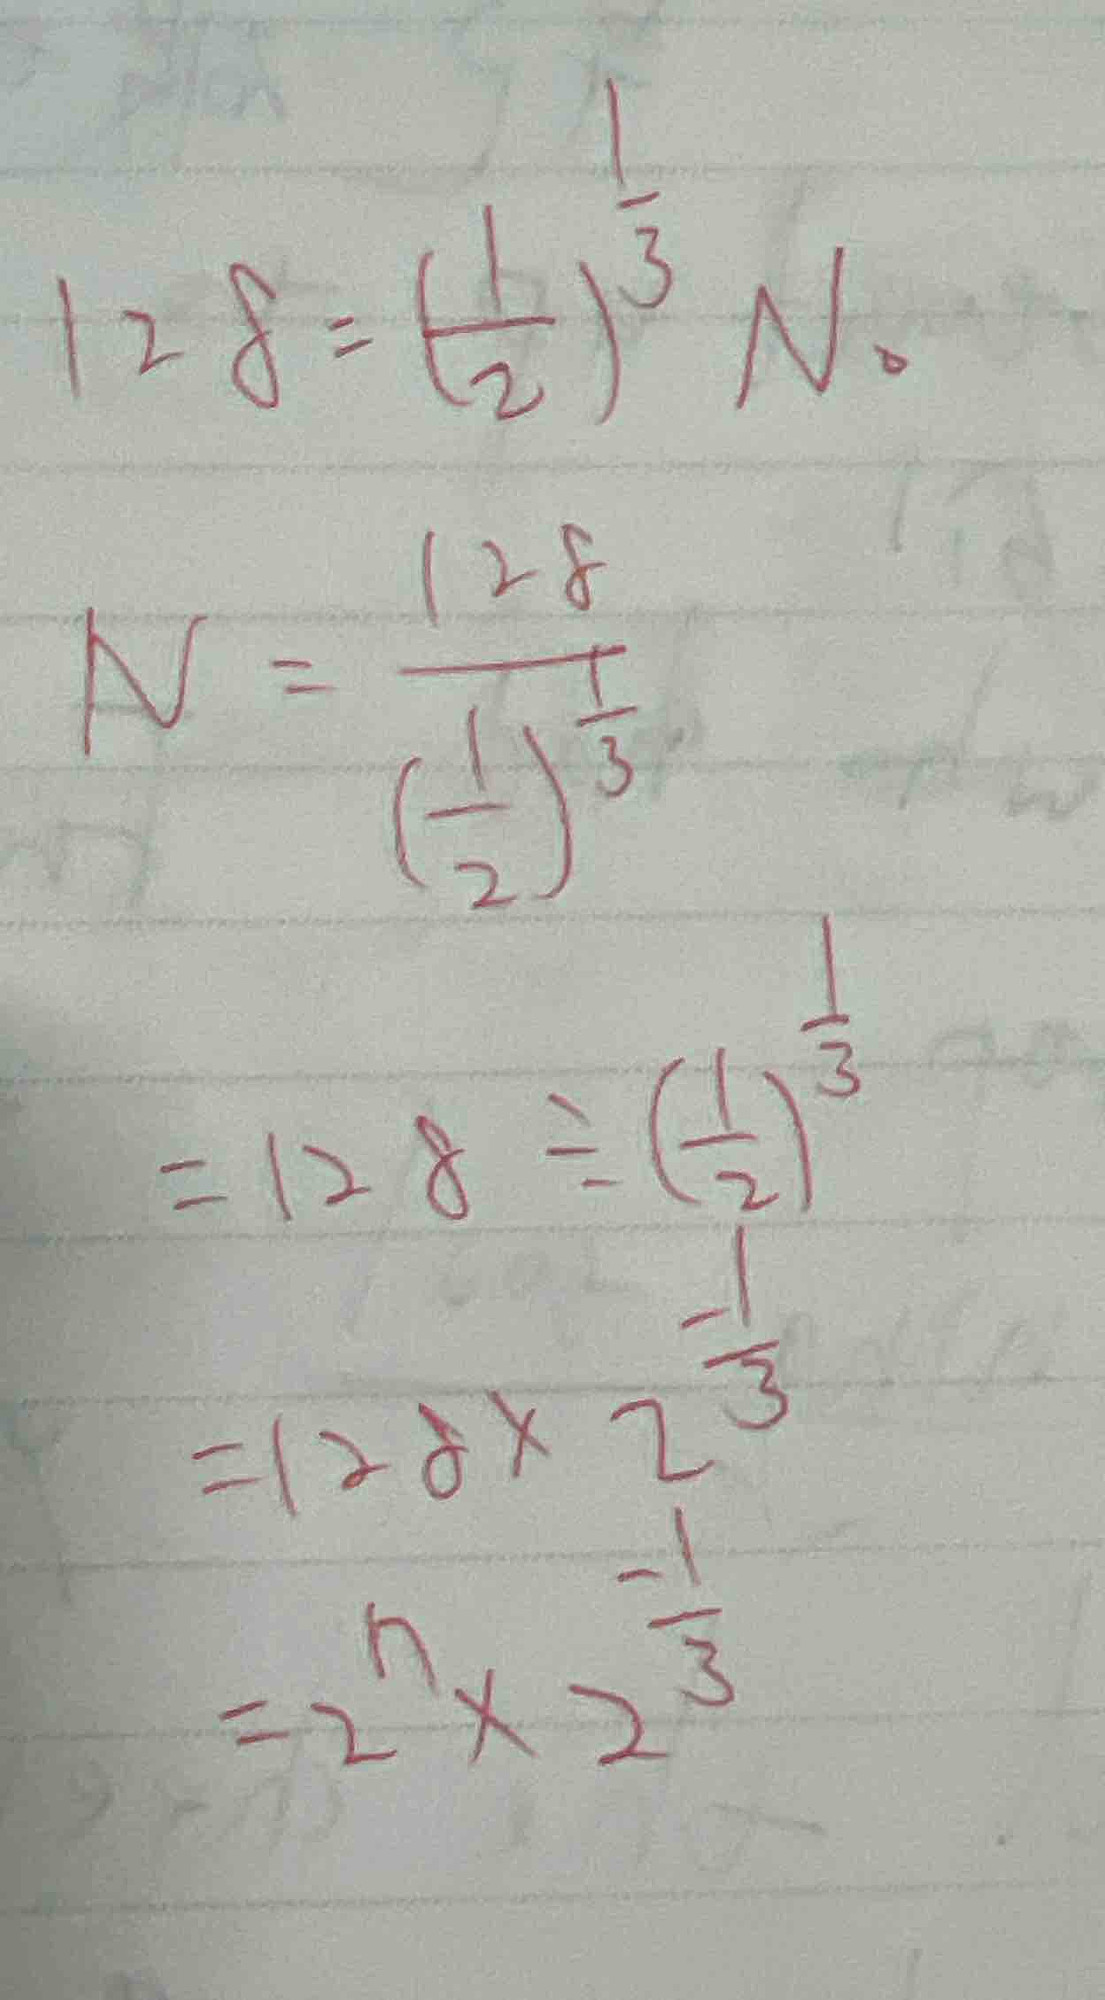 128 = (1/2)^(1/3) N₀
N = 128 / (1/2)^(1/3)
= 128 ÷ (1/2)^(1/3)
= 128 × 2^(-1/3)
= 2^n × 2^(-1/3)